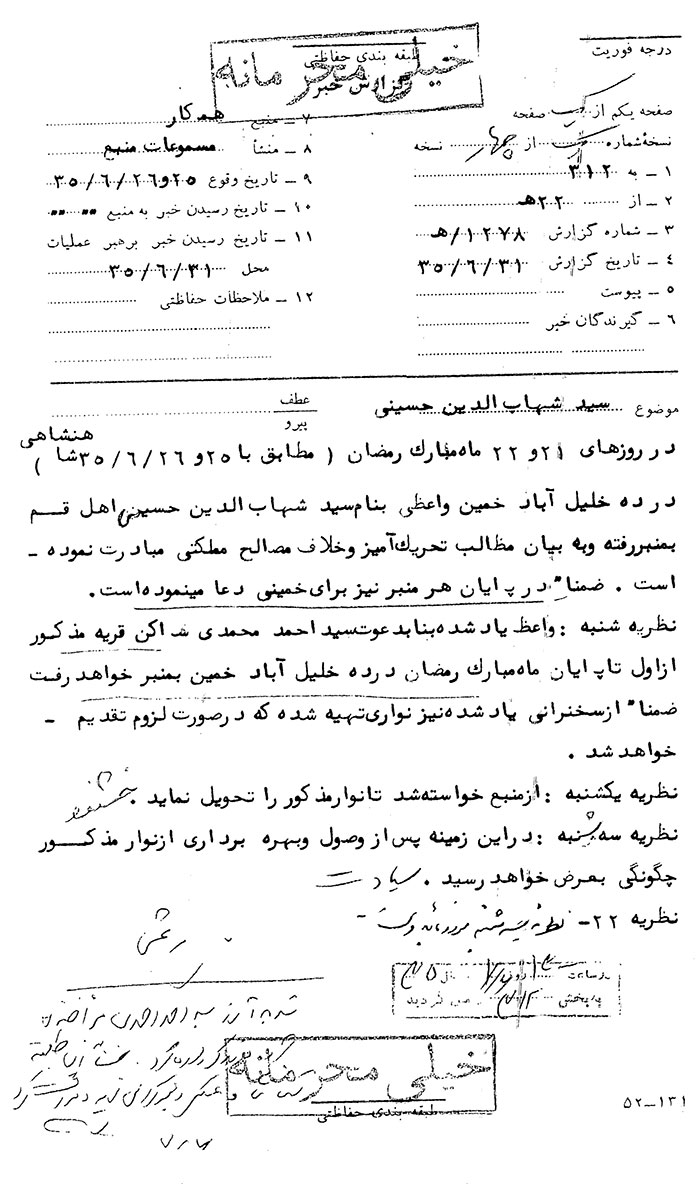 درجه فوریت
طبقه بندی حفاظتی
خیلی محرمانه
گزارش خبر
صفحه یکم از یک صفحه
نسخهٔ شماره یک از چهار نسخه
۱ ـ به ۳۱۲
۲ ـ از ۲۲هـ
۳ ـ شماره گزارش ۱۲۷۸/هـ
۴ ـ تاریخ گزارش ۳۵/۶/۳۱
۵ ـ پیوست
۶ ـ گیرندگان خبر
۷ ـ منبع همکار
۸ ـ منشأ مسموعات منبع
۹ ـ تاریخ وقوع ۲۵و۳۵/۶/۲۶
۱۰ ـ تاریخ رسیدن خبر به منبع
۱۱ ـ تاریخ رسیدن خبر برهبر عملیات
محل ۳۵/۶/۳۱
۱۲ ـ ملاحظات حفاظتی
موضوع سید شهاب الدین حسینی
عطف
پیرو
هنشاهی
در روزهای ۲۱و ۲۲ ماه مبارك رمضان ( مطابق با ۲۵و ۳۵/۶/۲۶شا )
در ده خلیل آباد خمین واعظی بنام سید شهاب الدین حسینی اهل قم
بمنبر رفته و به بیان مطالب تحریك آمیز و خلاف مصالح مملکتی مبادرت نموده ـ
است . ضمنا" در پایان هر منبر نیز برای خمینی دعا مینموده است.
نظریه شنبه : واعظ یاد شده بنابدعوت سید احمد محمدی ساکن قریه مذکور
از اول تا پایان ماه مبارك رمضان در ده خلیل آباد خمین بمنبر خواهد رفت
ضمنا" از سخنرانی یاد شده نیز نواری تهیه شده که در صورت لزوم تقدیم ـ
خواهد شد .
نظریه یکشنبه : از منبع خواسته شد تا نوار مذکور را تحویل نماید .
نظریه سه شنبه : در این زمینه پس از وصول و بهره برداری از نوار مذکور
چگونگی بعرض خواهد رسید .
نظریه ۲۲-
در ساعت روز سال
به بخش می گردید
خیلی محرمانه
طبقه بندی حفاظتی
۵۲ـ۱۳۱